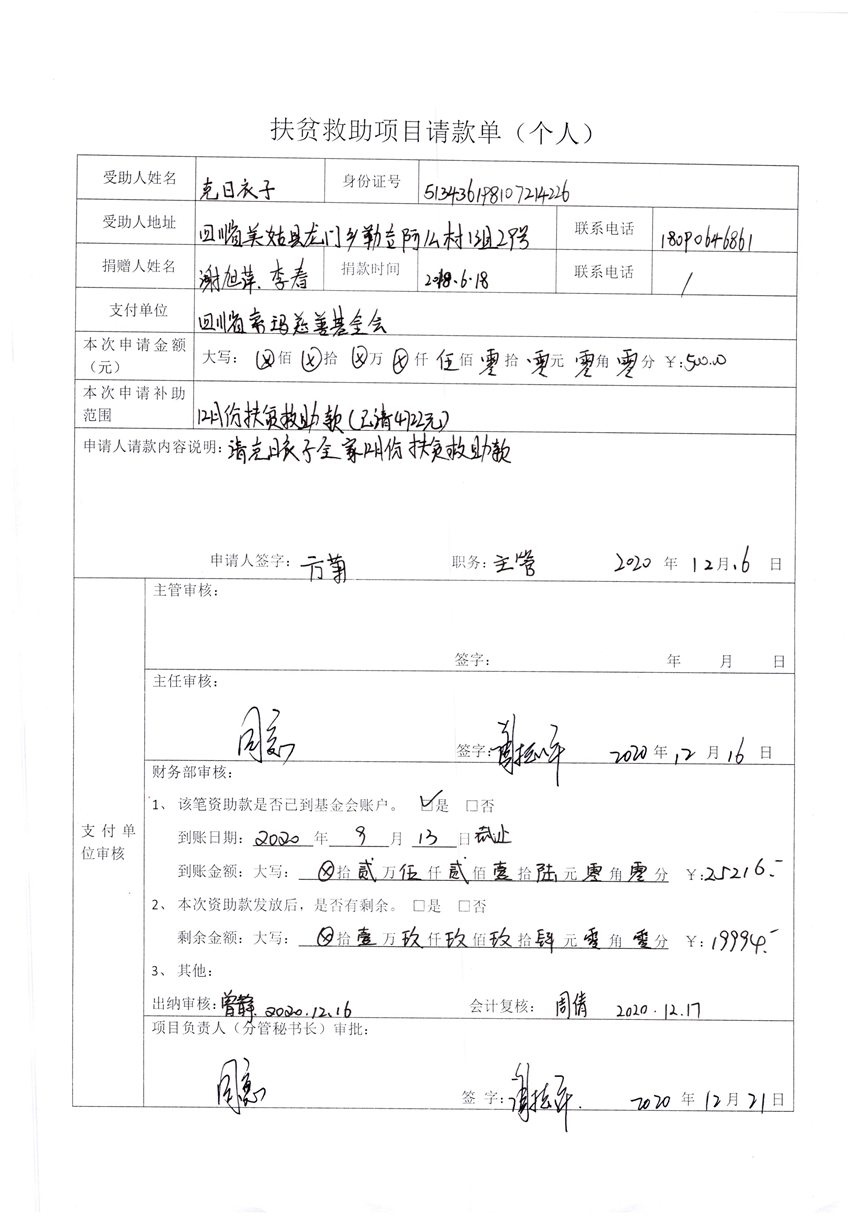 扶贫救助项目请款单（个人）
受助人姓名 克日衣子 身份证号 513436198107214226
受助人地址 四川省美姑县龙门乡勒立阿么村1组29号 联系电话 18090646861
捐赠人姓名 谢旭萍、李春 捐款时间 2018.6.18 联系电话 /
支付单位 四川省索玛慈善基金会
本次申请金额
（元） 大写：⊗佰⊗拾⊗万⊗仟伍佰零拾零元零角零分 ￥:500.00
本次申请补助
范围 12月份扶贫救助款(已请4722元)
申请人请款内容说明：请克日衣子全家12月份扶贫救助款
申请人签字： 职务：主管 2020 年 12月16 日
主管审核：
签字： 年 月 日
主任审核：
同意 签字： 2020年12月16日
支付单
位审核
财务部审核：
1、该笔资助款是否已到基金会账户。 ☑是 □否
到账日期：2020 年 9 月 13 日截止
到账金额：大写：⊗拾贰万伍仟贰佰壹拾陆元零角零分 ￥:25216.-
2、本次资助款发放后，是否有剩余。 □是 □否
剩余金额：大写：⊗拾壹万玖仟玖佰玖拾肆元零角零分 ￥:19994.-
3、其他：
出纳审核：曾静 2020.12.16 会计复核：周倩 2020.12.17
项目负责人（分管秘书长）审批：
同意 签 字： 2020 年 12月21日